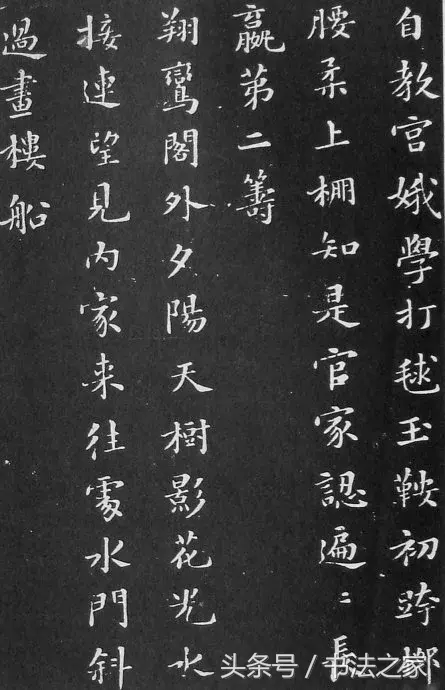 自教宮娥學打毬玉鞍初跨柳
腰柔上棚知是官家認遍〻長
嬴第二籌
翔鸞閣外夕陽天樹影花光水
接連望見内家来往處水門斜
過畫樓船
头条号 / 书法之家